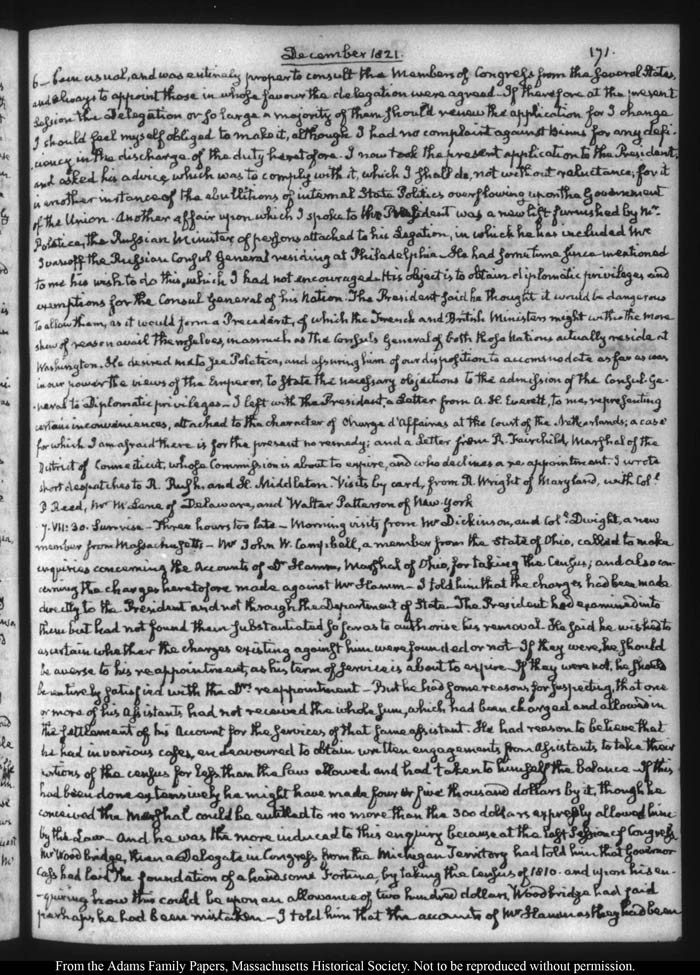 December 1821.
171.
6— been usual, and was entirely proper to consult the Members of Congress from the several States,
and always to appoint those in whose favour the delegation were agreed— If therefore at the present
Session the Delegation or so large a majority of them should renew the application for a change
I should feel myself obliged to make it, although I had no complaint against Binns for any defi-
ciency in the discharge of the duty heretofore. I now took the present application to the President,
and asked his advice, which was to comply with it, which I shall do, not without reluctance, for it
is another instance of the ebullitions of internal State Politics overflowing upon the Government
of the Union. Another affair upon which I spoke to the President was a new list furnished by Mr.
Poletica, the Russian Minister of persons attached to his Legation, in which he has included Mr
Ivanoff the Russian Consul General residing at Philadelphia. He had some time since mentioned
to me his wish to do this, which I had not encouraged. His object is to obtain diplomatic privileges and
exemptions for the Consul General of his Nation. The President said he thought it would be dangerous
to allow them, as it would form a Precedent, of which the French and British Ministers might with the more
shew of reason avail themselves, inasmuch as the Consuls General of both those Nations actually reside at
Washington. He desired me to see Poletica, and assuring him of our disposition to accommodate as far as was
in our power the views of the Emperor, to state the necessary objections to the admission of the Consul Ge-
neral to Diplomatic privileges— I left with the President a Letter from A. H. Everett, to me, representing
certain inconveniences, attached to the character of Chargé d'Affaires at the Court of the Netherlands; a case
for which I am afraid there is for the present no remedy; and a Letter from R. Fairchild, Marshal of the
District of Connecticut, whose Commission is about to expire, and who declines a re-appointment. I wrote
short despatches to R. Rush, and H. Middleton. Visits by card, from R. Wright of Maryland, with Col.
P Reed, Mr M. Lane of Delaware, and Walter Patterson of New-York
7. VII:30. Sunrise— Three hours too late— Morning visits from Mr Dickinson, and Col. Dwight, a new
member from Massachusetts— Mr John W. Campbell, a member from the State of Ohio, called to make
enquiries concerning the Accounts of Dr Hamm, Marshal of Ohio, for taking the Census; and also con-
cerning the charges heretofore made against Mr Hamm— I told him that the charges had been made
directly to the President and not through the Department of State— The President had examined into
them but had not found them substantiated so far as to authorise his removal. He said he wished to
ascertain whether the charges existing against him were founded or not— If they were, he should
be averse to his reappointment, as his term of service is about to expire— If they were not, he should
be entirely satisfied with the Drs. reappointment— But he had some reasons for suspecting, that one
or more of his Assistants had not received the whole sum, which had been charged and allowed in
the settlement of his Account for the services of that same assistant. He had reason to believe that
he had in various cases, endeavoured to obtain written engagements from Assistants to take their
portions of the census for less than the Law allowed and had taken to himself the balance— If this
had been done extensively he might have made four or five thousand dollars by it, though he
conceived the Marshal could be entitled to no more than the 300 dollars expressly allowed him
by the Law— And he was the more induced to this enquiry because at the last Session of Congress
Mr Woodbridge, then a Delegate in Congress from the Michigan Territory had told him that Governor
Cass had laid the foundation of a handsome Fortune, by taking the Census of 1810. and upon his en-
-quiring how this could be upon an allowance of two hundred dollars, Woodbridge had said
perhaps he had been mistaken— I told him that the accounts of Mr Hamm as they had been
From the Adams Family Papers, Massachusetts Historical Society. Not to be reproduced without permission.